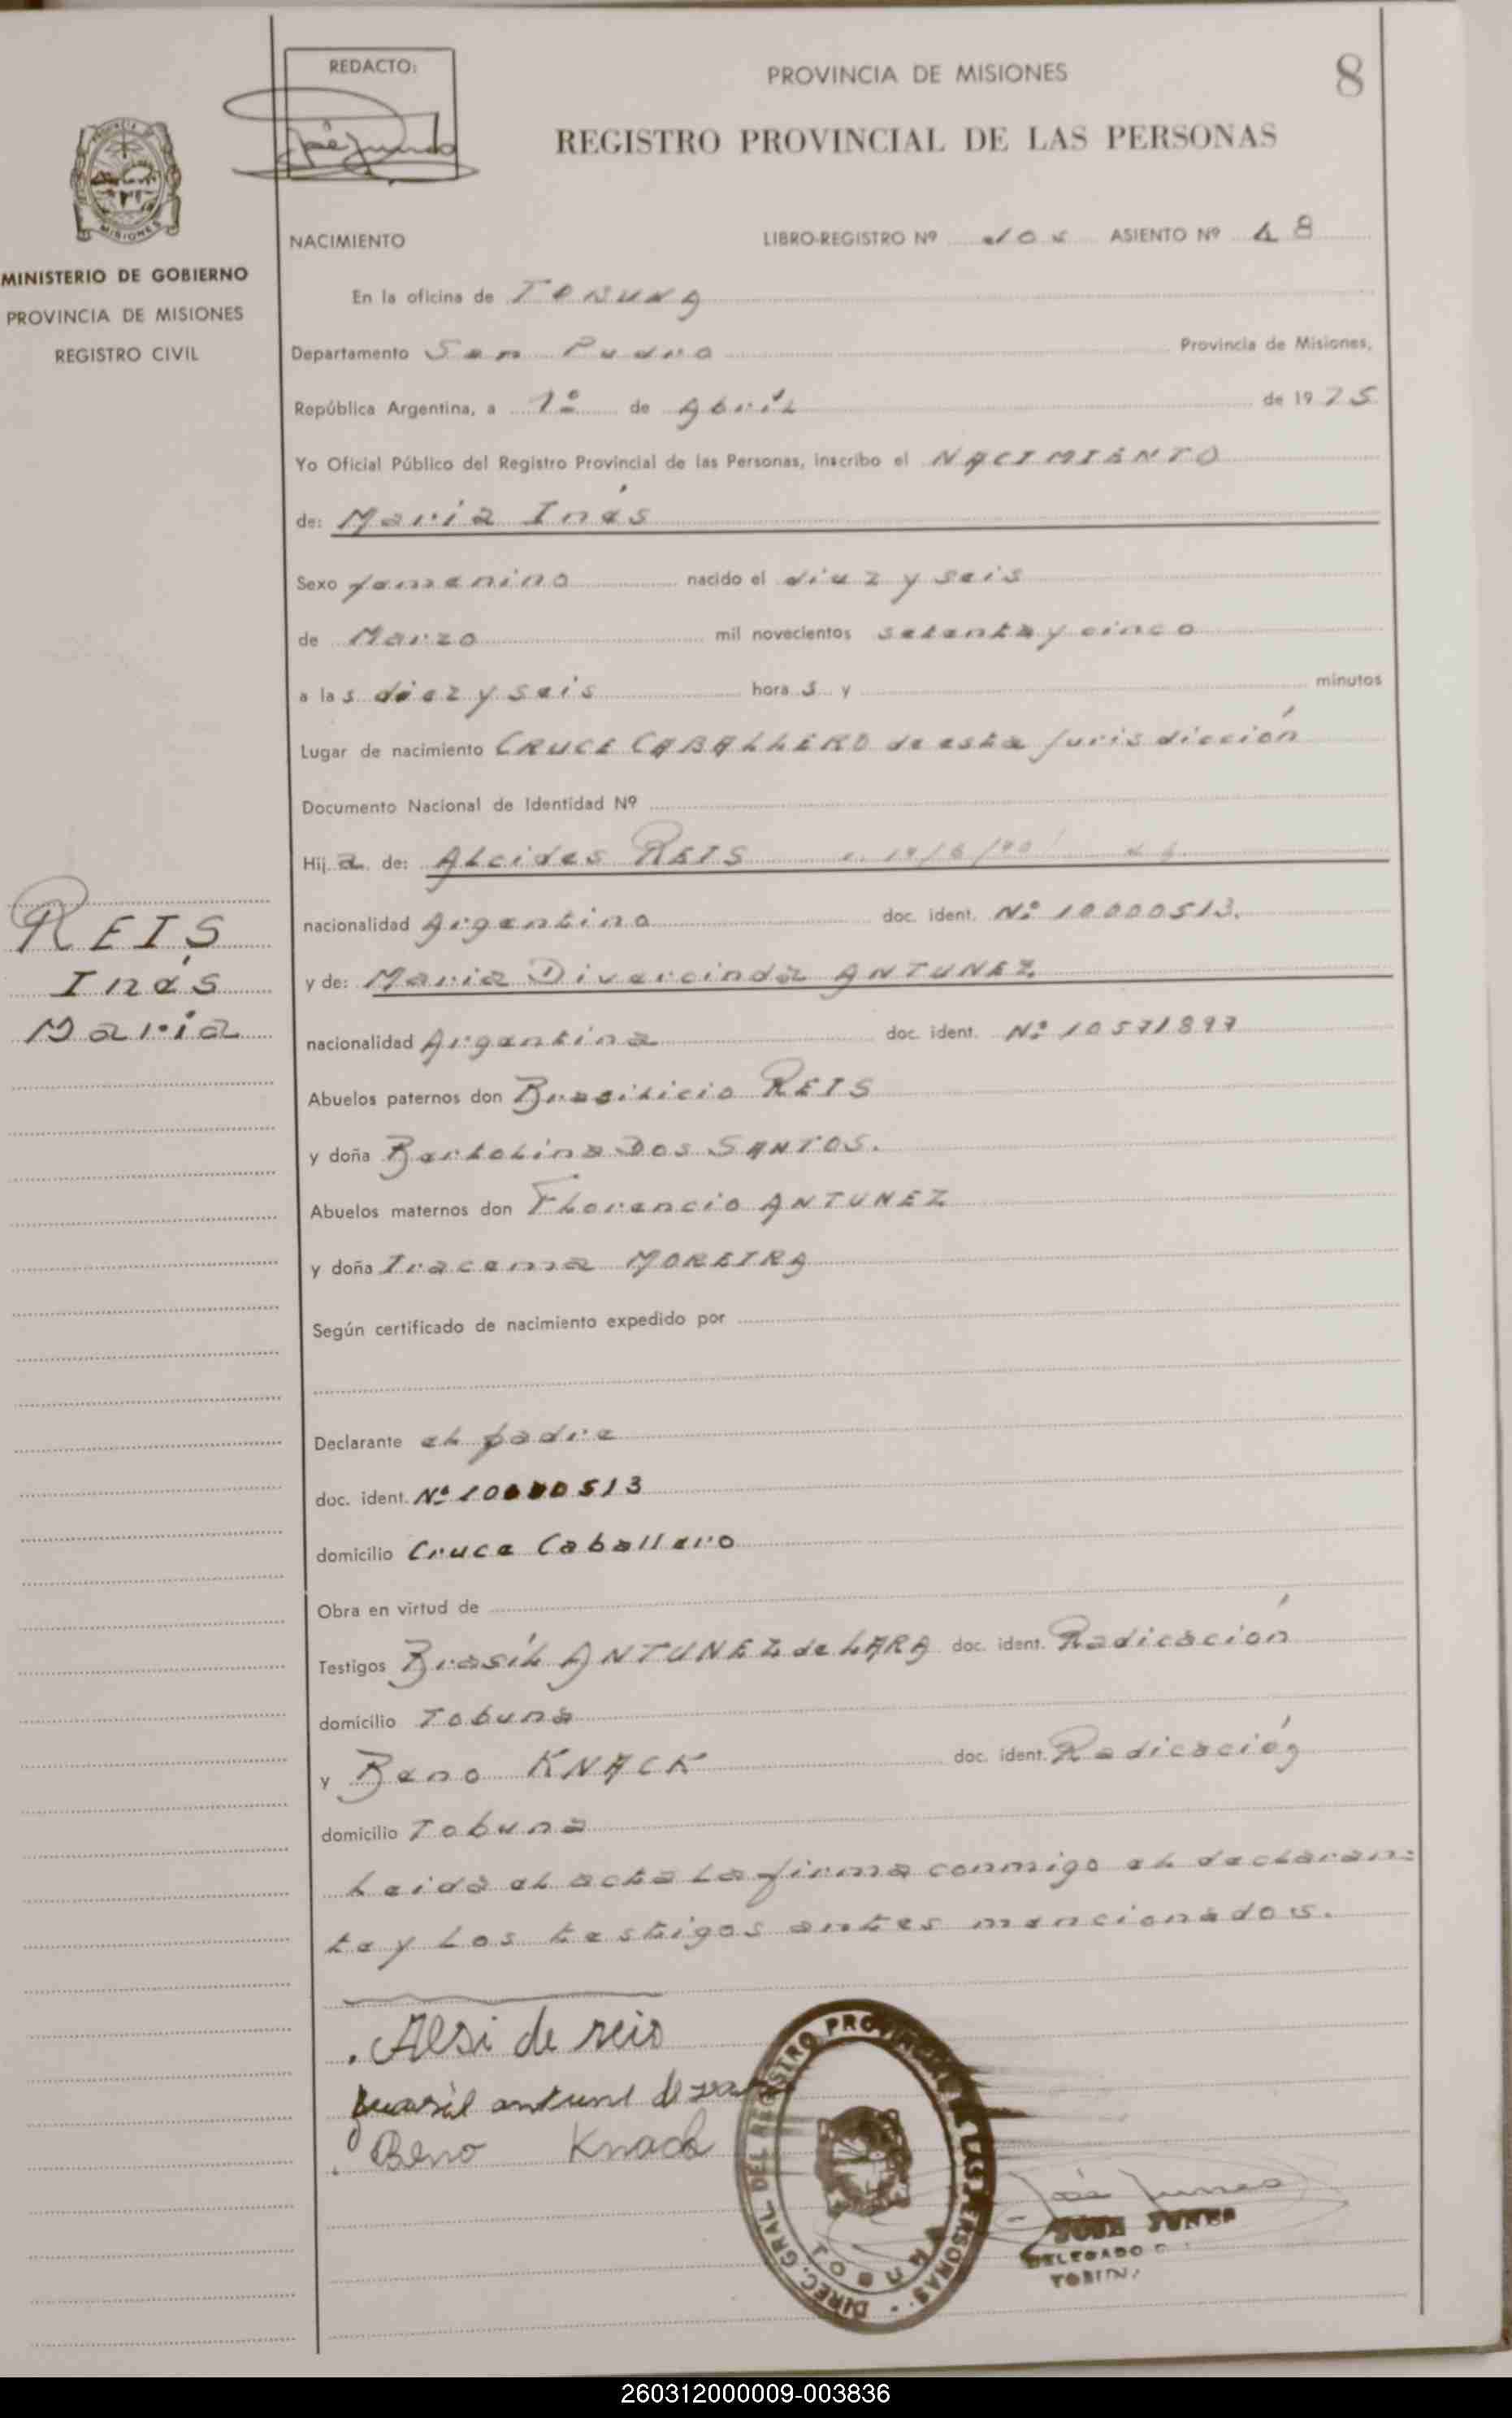 REDACTO:
PROVINCIA DE MISIONES
8
REGISTRO PROVINCIAL DE LAS PERSONAS
MISIONES
MINISTERIO DE GOBIERNO
PROVINCIA DE MISIONES
REGISTRO CIVIL
NACIMIENTO
LIBRO-REGISTRO Nº dos ASIENTO Nº 48
En la oficina de TOBUNA
Departamento San Pedro Provincia de Misiones,
República Argentina, a 1º de Abril de 1975
Yo Oficial Público del Registro Provincial de las Personas, inscribo el NACIMIENTO
de: Maria Inés
Sexo femenino nacido el diez y seis
de Marzo mil novecientos setenta y cinco
a las diez y seis horas y minutos
Lugar de nacimiento CRUCE CABALLERO de esta jurisdicción
Documento Nacional de Identidad Nº
Hija de: Alcides REIS
nacionalidad Argentina doc. ident. Nº 10000513.
y de: Maria Divercinda ANTUNEZ
nacionalidad Argentina doc. ident. Nº 10571897
Abuelos paternos don Brasilicio REIS
y doña Bartolina DOS SANTOS.
Abuelos maternos don Florencio ANTUNEZ
y doña Iracema MOREIRA
Según certificado de nacimiento expedido por
Declarante el padre
doc. ident. Nº 10000513
domicilio Cruce Caballero
Obra en virtud de
Testigos Brasil ANTUNEZ de LARA doc. ident. Radicación
domicilio Tobuna
y Beno KNACK doc. ident. Radicación
domicilio Tobuna
Leida el acta la firma conmigo el declaran=
te y los testigos antes mencionados.
REIS
Inés
Maria
Alsi de reis
brasil antune de
Beno Knack
DIREC. GRAL. DEL REGISTRO PROVINCIAL DE LAS PERSONAS
TOBUNA
José Junes
JOSE JUNES
DELEGADO
TOBUNA
260312000009-003836